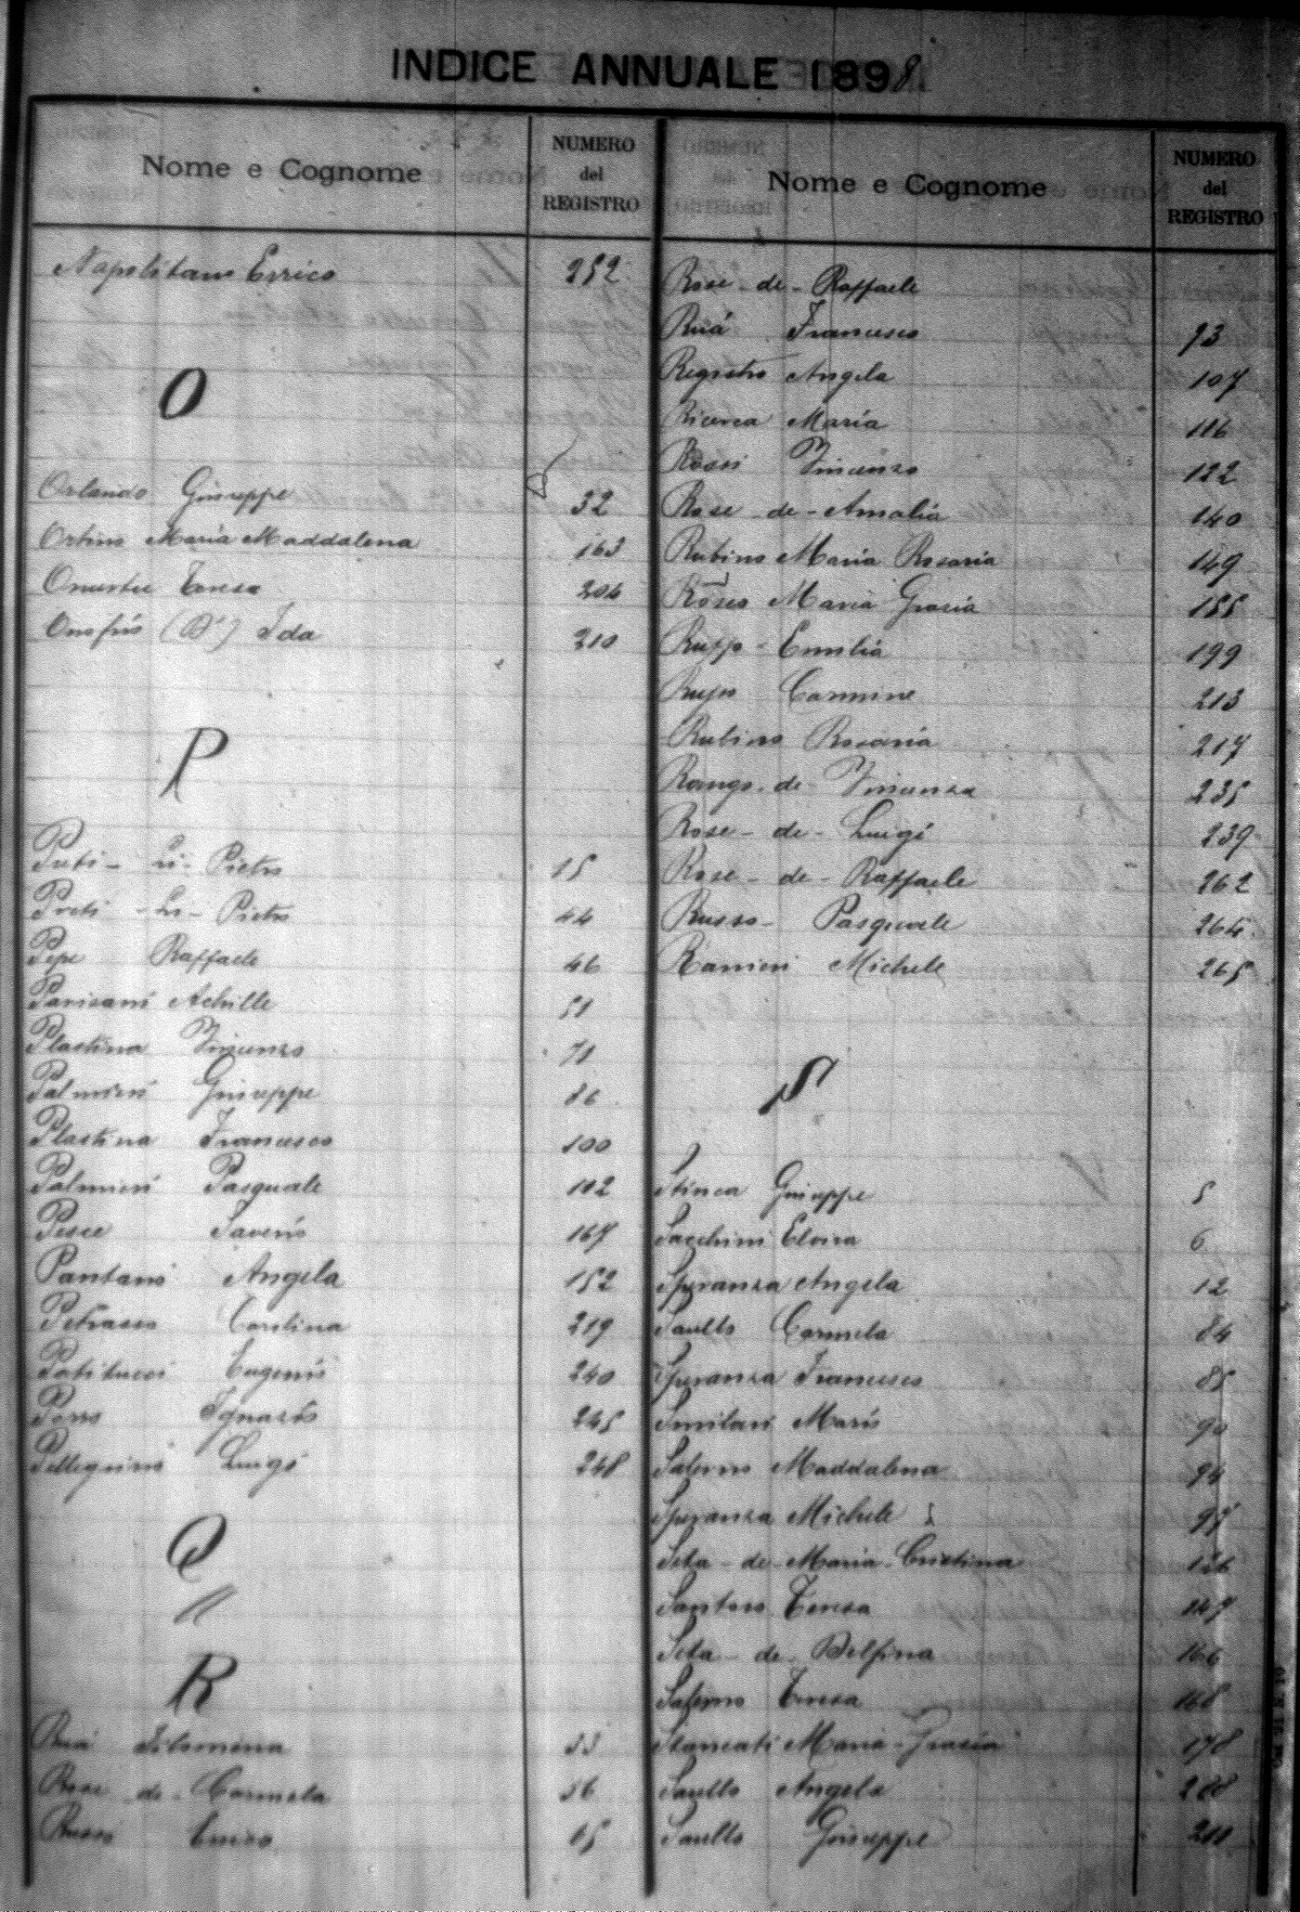 INDICE ANNUALE 1898.
Nome e Cognome
NUMERO
del
REGISTRO
Napolitano Errico 252
O
Orlando Giuseppe 32
Ortino Maria Maddalena 163
Teresa 204
Onofrio (D') Ida 210
P
Preti - Li - Pietro 15
Preti - Li - Pietro 44
Pepe Raffaele 46
Parisani Achille 51
Plastina Vincenzo 71
Palmieri Giuseppe 86
Plastina Francesco 100
Palmieri Pasquale 102
Pesce Saverio 167
Pantano Angela 152
Petrasso Carolina 219
Patitucci Eugenio 240
Ignazio 245
Pellegrino Luigi 248
Q
"
R
Ruà Filomena 53
Rose - de - Carmela 56
Russo 65
Nome e Cognome
NUMERO
del
REGISTRO
Rose - de - Raffaele
Ruà Francesco 93
Registro Angela 107
Ricerca Maria 116
Rossi Vincenzo 122
Rose - de - Amalia 140
Rubino Maria Rosaria 149
Maria Grazia 155
Ruffo - Emilia 199
Carmine 213
Rubino Rosaria 217
Rango - de - Vincenza 235
Rose - de - Luigi 239
Rose - de - Raffaele 262
Russo - Pasquale 264
Ranieri Michele 265
S
Stinca Giuseppe 5
Sacchini Elvira 6
Speranza Angela 12
Saullo Carmela 84
Speranza Francesco 85
Smilari Mario 90
Salerno Maddalena 94
Speranza Michele 97
Seta - de - Maria - Cristina 126
Santoro Teresa 147
Seta - de - Delfina 166
Salerno Teresa 168
Stancati Maria - Grazia 178
Saullo Angela 208
Saullo Giuseppe 211